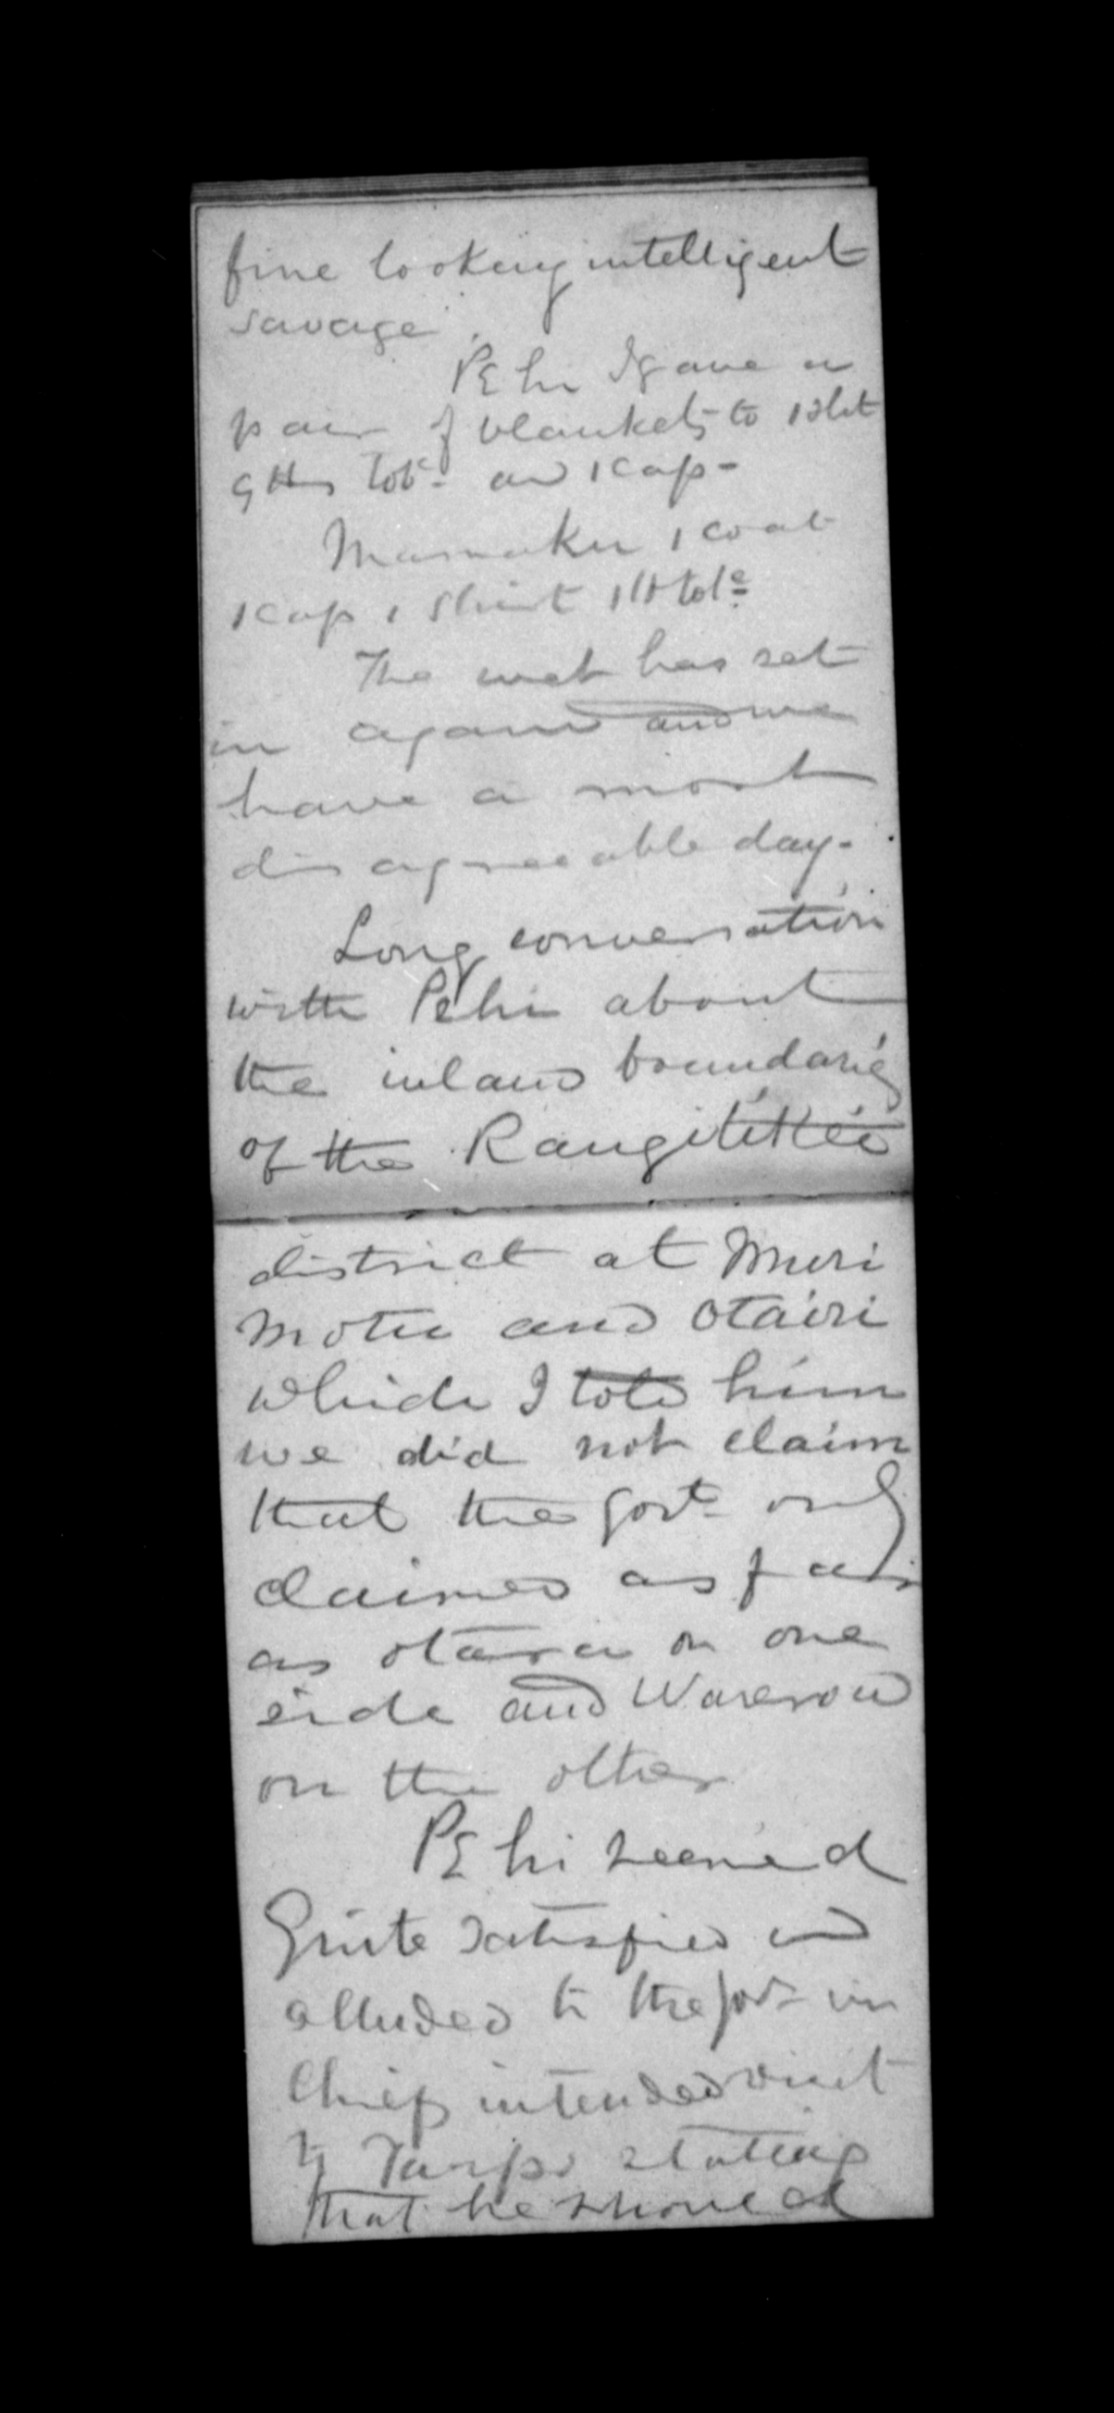 fine looking intelligent
savage.
Pehi I gave a
pair of blankets to 1 shirt
9 lbs tobc. and 1 Cap -
Mamaku 1 coat
1 Cap 1 Shirt 1 lb tobc
The wet has set
in again and we
have a most
disagreeable day.
Long conversation
with Pehi about
the inland boundaries
of the Rangitikei
district at Muri
Motu and Otairi
which I told him
we did not claim
that the Govt. only
claimed as far
as otara on one
side and Warerou
on the other
Pehi seemed
Quite satisfied and
alluded to the Govr in
Chiefs intended visit
to Taupo stating
that he should